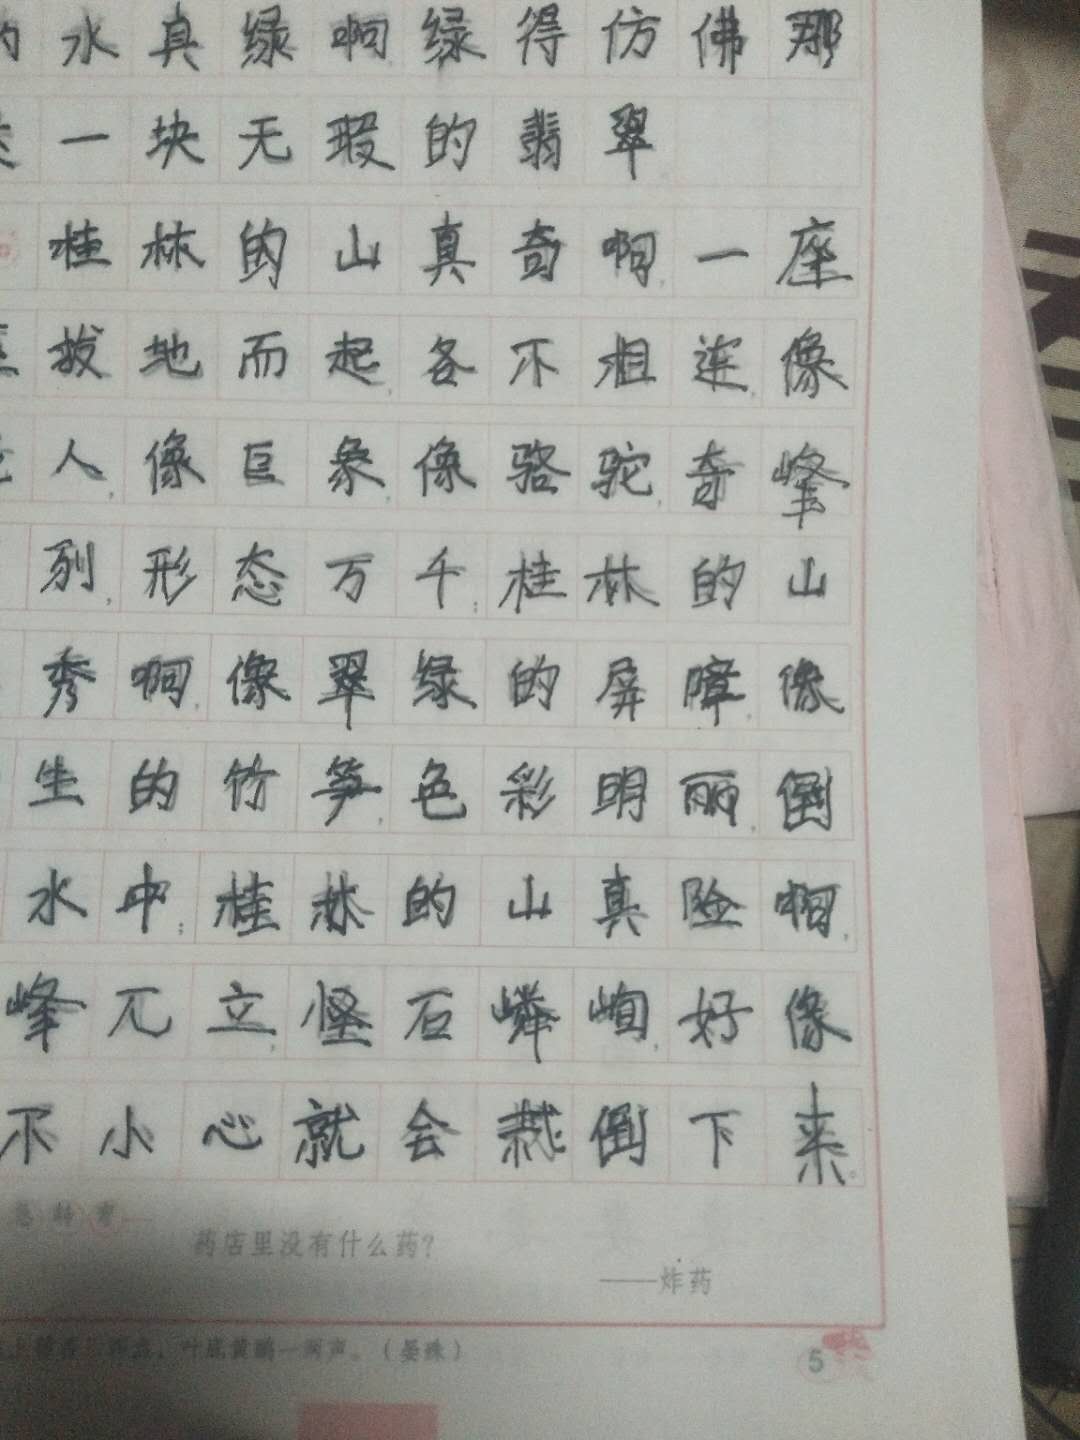 水真绿啊绿得仿佛那
一块无瑕的翡翠
桂林的山真奇啊,一座
拔地而起,各不相连,像
人,像巨象,像骆驼,奇峰
列,形态万千;桂林的山
秀啊,像翠绿的屏障,像
生的竹笋,色彩明丽,倒
水中;桂林的山真险啊,
峰兀立,怪石嶙峋,好像
不小心就会栽倒下来。
药店里没有什么药?
——炸药
叶底黄鹂一两声。(晏殊)
5